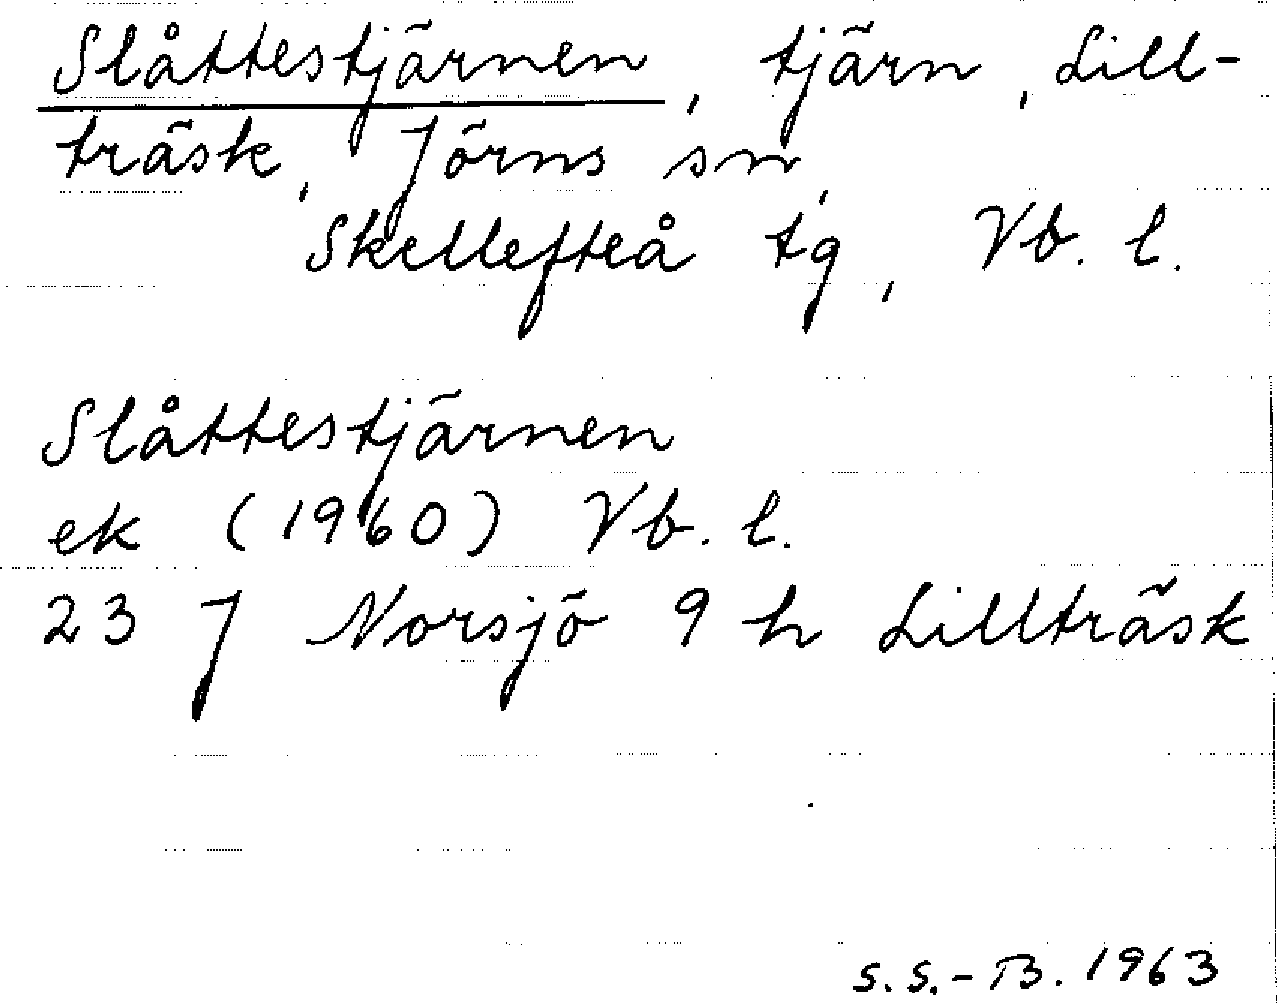 Slåttestjärnen, tjärn, Lill-
träsk, Jörns sn,
Skellefteå tg, Vb. l.
Slåttestjärnen
ek (1960) Vb. l.
23 J Norsjö 9 h Lillträsk
S.S.-B. 1963